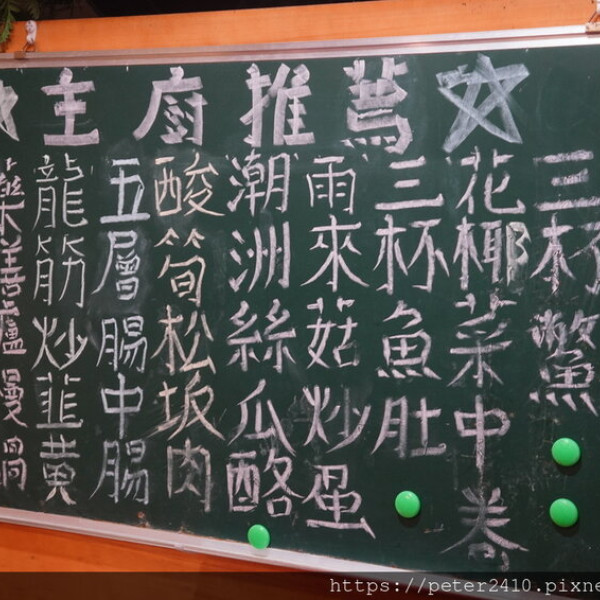 主廚推薦
三杯鱉
花椰菜中卷
三杯魚肚
雨來菇炒蛋
潮洲絲瓜酪
酸筍松坂肉
五層腸中腸
龍筋炒韭黃
藥善
鍋
https://peter2410.pixne